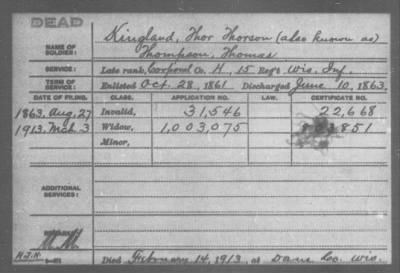 DEAD
Kingland, Thor Thorson (also known as)
NAME OF SOLDIER: Thompson, Thomas
SERVICE: Late rank, Corporal Co. H, 15 Reg't Wis. Inf.
TERM OF SERVICE: Enlisted Oct. 28, 1861 Discharged June 10, 1863,
DATE OF FILING. CLASS. APPLICATION NO. LAW. CERTIFICATE NO.
1863, Aug, 27 Invalid, 31,546 22,668
1913, Mch. 3 Widow, 1,003,075 851
Minor,
ADDITIONAL SERVICES:
M M
Died February 14, 1913, at Dane Co. Wis.